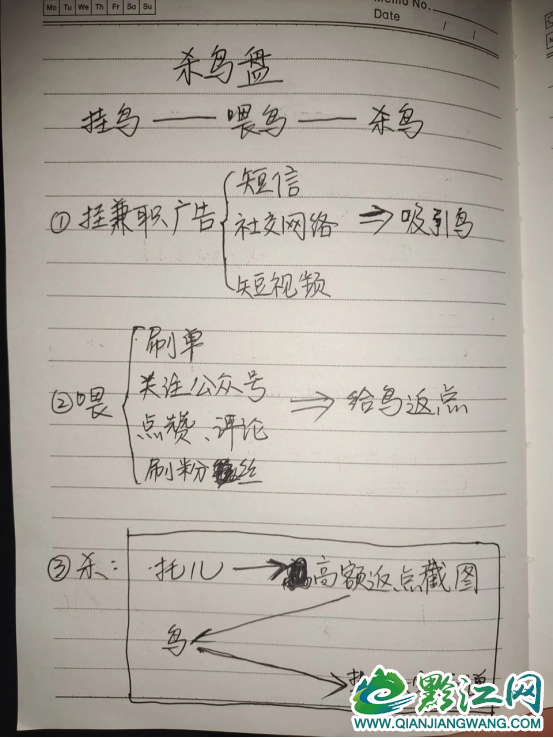 Mo Tu We Th Fr Sa Su
Memo No.
Date / /
杀鸟盘
挂鸟 — 喂鸟 — 杀鸟
短信
①挂兼职广告 社交网络 ⇒ 吸引鸟
短视频
刷单
关注公众号
②喂 ⇒ 给鸟返点
点赞、评论
刷粉丝
③杀: 托儿 → 高额返点截图
鸟
黔江网
WWW.QIANJIANGWANG.COM